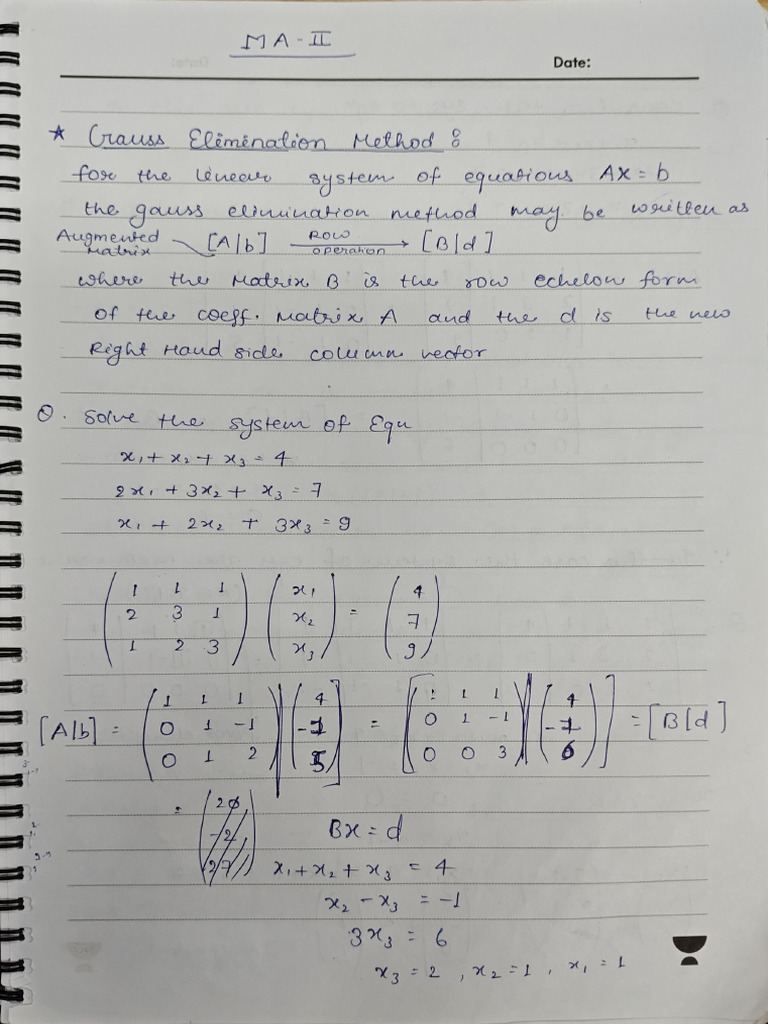 MA-II
Date:
* Gauss Elimination Method :
for the linear system of equations AX = b
the gauss elimination method may be written as
Augmented Matrix [A|b] Row operation → [B|d]
where the Matrix B is the row echelon form
of the coeff. Matrix A and the d is the new
Right Hand side column vector
Q. Solve the system of Equ
x₁ + x₂ + x₃ = 4
2x₁ + 3x₂ + x₃ = 7
x₁ + 2x₂ + 3x₃ = 9
( 1 1 1 ) ( x₁ ) = ( 4 )
( 2 3 1 ) ( x₂ ) ( 7 )
( 1 2 3 ) ( x₃ ) ( 9 )
[A|b] = ( 1 1 1 | 4 ) = [ 1 1 1 | 4 ] = [B|d]
( 0 1 -1 | -1 ) [ 0 1 -1 | -1 ]
( 0 1 2 | 5 ) [ 0 0 3 | 6 ]
Bx = d
x₁ + x₂ + x₃ = 4
x₂ - x₃ = -1
3x₃ = 6
x₃ = 2 , x₂ = 1 , x₁ = 1